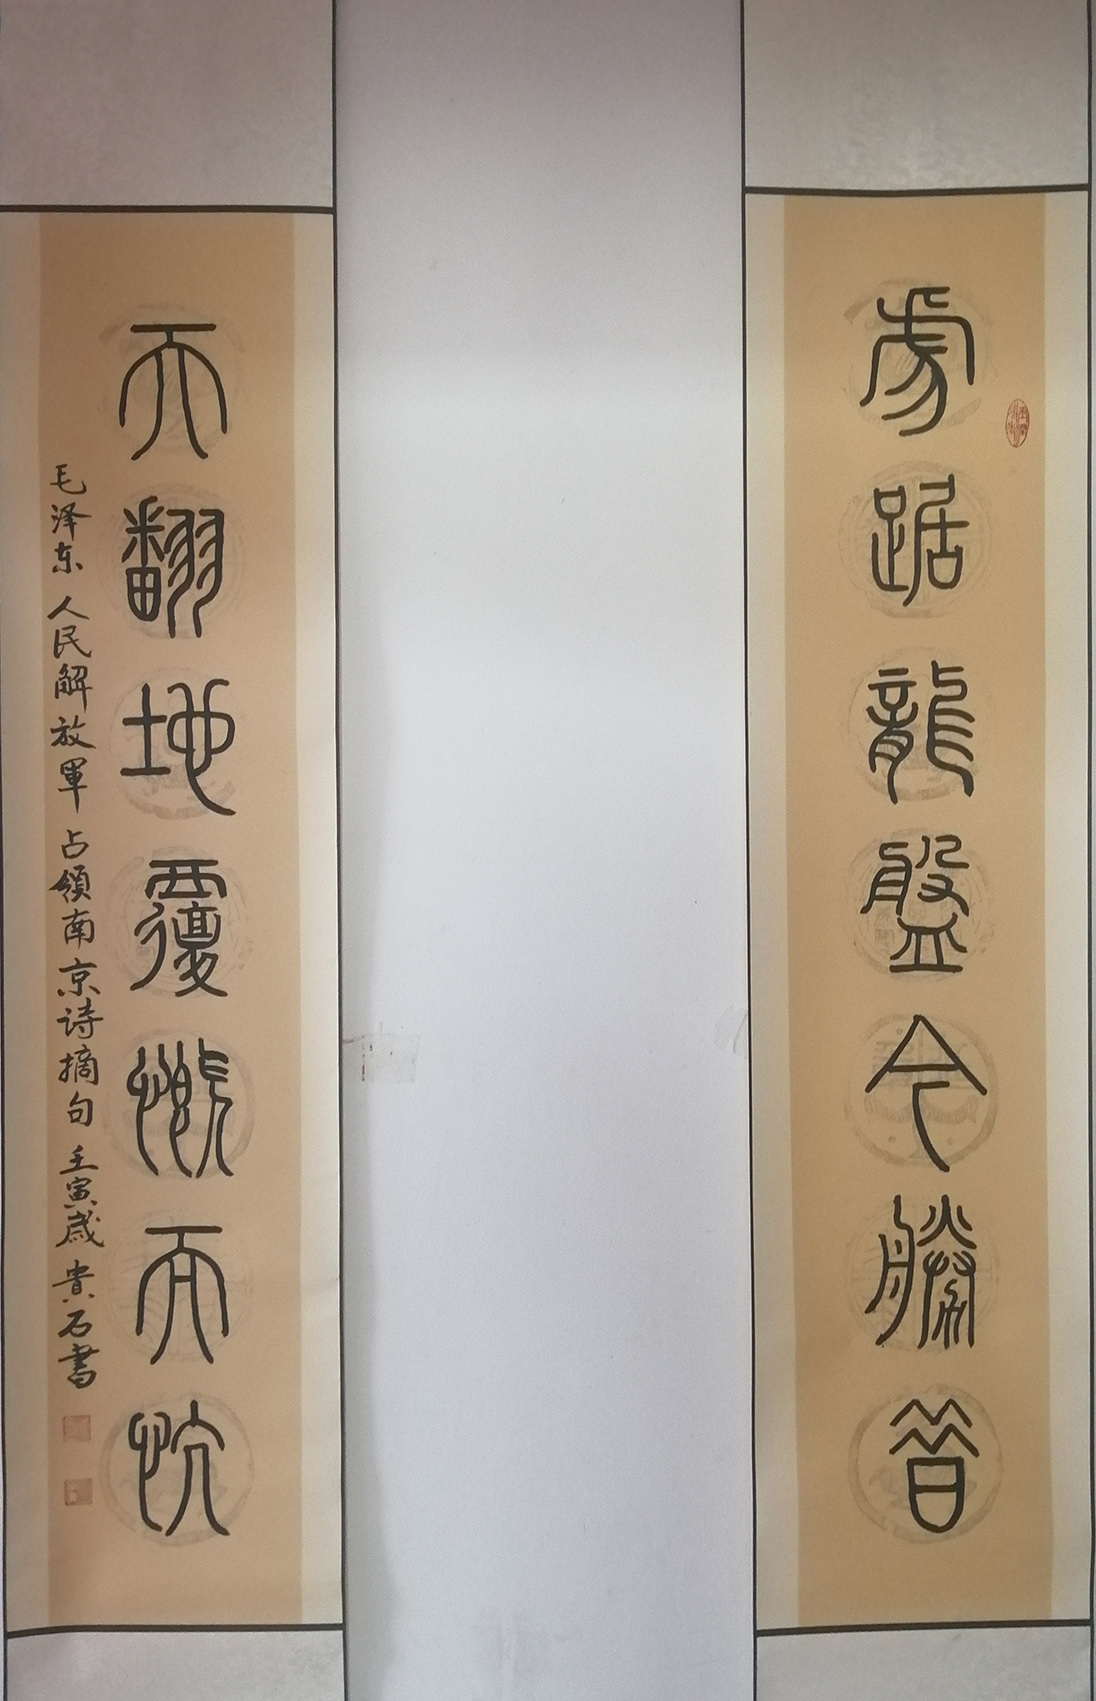 虎踞龍盤今勝昔
天翻地覆慨而忼
毛泽东人民解放軍占領南京诗摘句壬寅歲貴石書